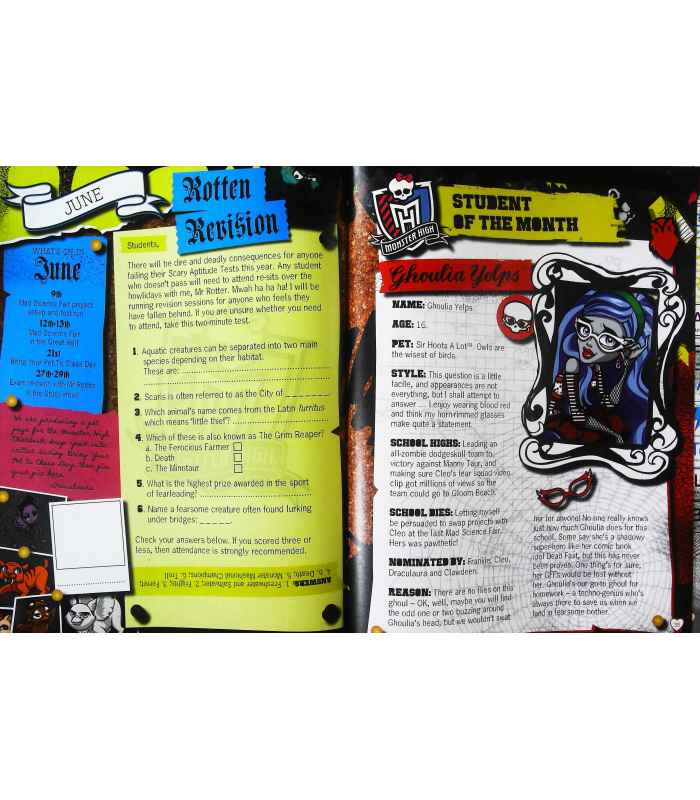 JUNE
WHAT'S ON IN
June
9th
Mad Science Fair project
set-up and test run
12th-13th
Mad Science Fair
in the Great Hall
21st
Bring Your Pet To Class Day
27th-29th
Exam re-sits with Mr Rotter
in the Study Howl
We are producing a pet
page for the Monster High
Yearbook
Draculaura
Rotten
Revision
Students,
There will be dire and deadly consequences for anyone
failing their Scary Aptitude Tests this year. Any student
who doesn't pass will need to attend re-sits over the
howlidays with me, Mr Rotter. Mwah ha ha ha! I will be
running revision sessions for anyone who feels they
have fallen behind. If you are unsure whether you need
to attend, take this two-minute test.
1. Aquatic creatures can be separated into two main
species depending on their habitat.
These are:
2. Scaris is often referred to as the City of _ _ _ _ _ _ _
3. Which animal's name comes from the Latin furittus
which means 'little thief'?
4. Which of these is also known as The Grim Reaper?
a. The Ferocious Farmer
b. Death
c. The Minotaur
5. What is the highest prize awarded in the sport
of fearleading?
6. Name a fearsome creature often found lurking
under bridges: _ _ _ _ _
Check your answers below. If you scored three or
less, then attendance is strongly recommended.
ANSWERS: 1. Freshwater and Saltwater; 2. Frights; 3. Ferret;
4. b. Death; 5. Monster Mashional Champions; 6. Troll
MONSTER HIGH
STUDENT
OF THE MONTH
Ghoulia Yelps
NAME: Ghoulia Yelps
AGE: 16
PET: Sir Hoots A Lot™. Owls are
the wisest of birds.
STYLE: This question is a little
facile, and appearances are not
everything, but I shall attempt to
answer ... I enjoy wearing blood red
and think my horn-rimmed glasses
make quite a statement.
SCHOOL HIGHS: Leading an
all-zombie dodgeskull team to
victory against Manny Taur, and
making sure Cleo's fear squad video
clip got millions of views so the
team could go to Gloom Beach.
SCHOOL DIES: Letting myself
be persuaded to swap projects with
Cleo at the last Mad Science Fair.
Hers was pawthetic!
NOMINATED BY: Frankie, Cleo,
Draculaura and Clawdeen
REASON: There are no flies on this
ghoul – OK, well, maybe you will find
the odd one or two buzzing around
Ghoulia's head, but we wouldn't swat
her for anyone! No one really knows
just how much Ghoulia does for this
school. Some say she's a shadowy
superhero like her comic book
idol Dead Fast, but this has never
been proven. One thing's for sure,
her GFFs would be lost without
her. Ghoulia's our go-to ghoul for
homework – a techno-genius who's
always there to save us when we
land in fearsome bother.